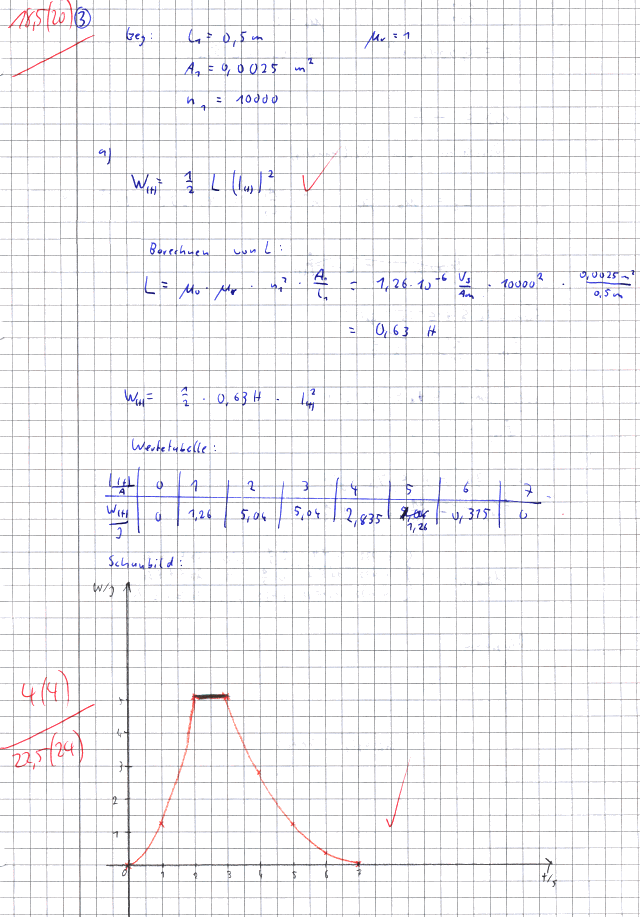 18,5(20) ③
Geg: l₁ = 0,5 m μᵣ = 1
A₁ = 0,0025 m²
n₁ = 10000
a)
W(t) = 1/2 L (I(t))²
Berechnen von L:
L = μ₀ · μᵣ · n₁² · A₁/l₁ = 1,26 · 10⁻⁶ Vs/Am · 10000² · 0,0025 m²/0,5 m
= 0,63 H
W(t) = 1/2 · 0,63 H · I(t)²
Wertetabelle:
I(t)/A 0 1 2 3 4 5 6 7
W(t)/J 0 1,26 5,04 5,04 2,835 1,26 0,315 0
Schaubild:
W/J
4(4)
22,5(24)
5
4
3
2
1
0 1 2 3 4 5 6 7 t/s